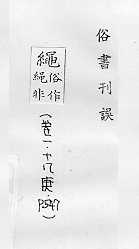 俗書刊誤
繩俗作
繩非
(卷一．十八庚．P547)